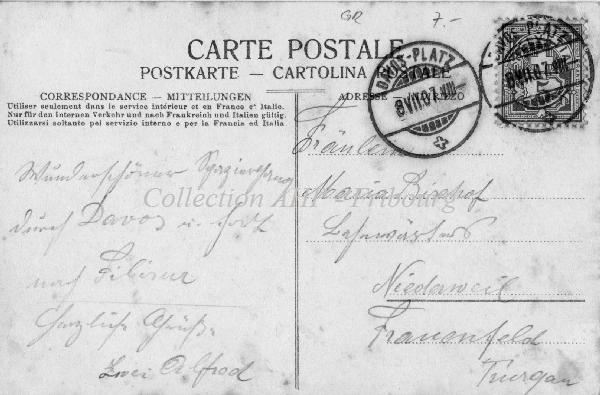 GR 7.-
CARTE POSTALE
POSTKARTE — CARTOLINA POSTALE
CORRESPONDANCE - MITTEILUNGEN
Utiliser seulement dans le service intérieur et en France et Italie.
Nur für den internen Verkehr und nach Frankreich und Italien gültig.
Utilizzarsi soltanto pel servizio interno e per la Francia ed Italia
ADRESSE
DAVOS-PLATZ
8.VII.07.VIII
DAVOS-PLATZ
8.VII.07.VIII
Fräulein
Maria Bischof
Bahnwärters
Niederweil
Frauenfeld
Turgau
Wunderschöner Spaziergang
durch Davos u. fort
nach Filisur
Herzliche Grüße
Alfred
Collection